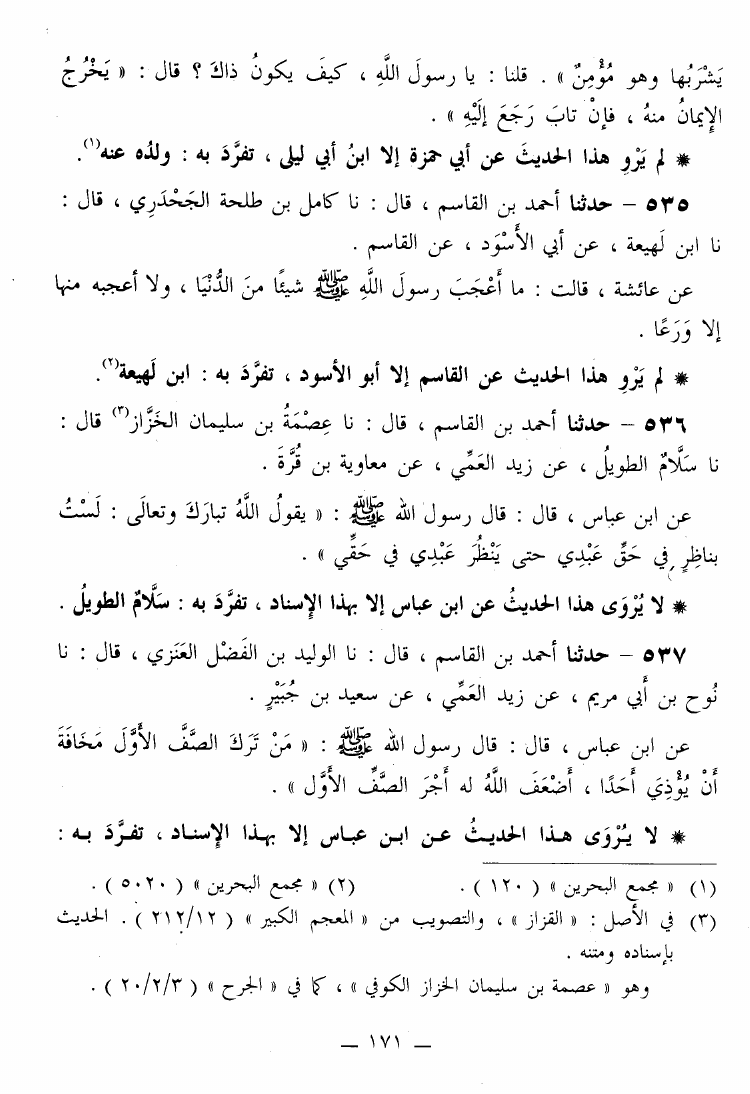 يَشْرَبُها وهو مُؤْمِنٌ » . قلنا : يا رسولَ اللَّهِ ، كيفَ يكونُ ذاكَ ؟ قال : « يَخْرُجُ
الإِيمانُ منهُ ، فإنْ تابَ رَجَعَ إلَيْهِ » .
* لم يَرْوِ هذا الحديثَ عن أبي حمزة إلا ابنُ أبي ليلى ، تفرَّدَ به : ولدُه عنه(١).
٥٣٥ – حدثنا أحمد بن القاسم ، قال : نا كامل بن طلحة الجَحْدَرِي ، قال :
نا ابن لَهيعة ، عن أبي الأَسْوَد ، عن القاسم .
عن عائشة ، قالت : ما أَعْجَبَ رسولَ اللَّهِ ﷺ شيئًا منَ الدُّنْيَا ، ولا أعجبه منها
إلا وَرَعًا .
* لم يَرْوِ هذا الحديث عن القاسم إلا أبو الأسود ، تفرَّدَ به : ابن لَهيعة(٢).
٥٣٦ – حدثنا أحمد بن القاسم ، قال : نا عِصْمَةُ بن سليمان الخَزَّاز(٣) قال :
نا سَلَّامٌ الطويلُ ، عن زيد العَمِّي ، عن معاوية بن قُرَّةَ .
عن ابن عباس ، قال : قال رسول الله ﷺ : « يقولُ اللَّهُ تبارَكَ وتعالَى : لَسْتُ
بناظِرٍ في حَقِّ عَبْدِي حتى يَنْظُرَ عَبْدِي في حَقِّي » .
* لا يُرْوَى هذا الحديثُ عن ابن عباس إلا بهذا الإِسناد ، تفرَّدَ به : سَلَّامٌ الطويلُ .
٥٣٧ – حدثنا أحمد بن القاسم ، قال : نا الوليد بن الفَضْل العَنَزي ، قال : نا
نُوح بن أَبي مريم ، عن زيد العَمِّي ، عن سعيد بن جُبَيْرٍ .
عن ابن عباس ، قال : قال رسول الله ﷺ : « مَنْ تَرَكَ الصَّفَّ الأَوَّلَ مَخَافَةَ
أَنْ يُؤْذِيَ أَحَدًا ، أَضْعَفَ اللَّهُ له أَجْرَ الصَّفِّ الأَوَّل » .
* لا يُرْوَى هذا الحديثُ عن ابن عباس إلا بهذا الإِسناد ، تفرَّدَ به :
(١) « مجمع البحرين » ( ١٢٠ ) . (٢) « مجمع البحرين » ( ٥٠٢٠ ) .
(٣) في الأصل : « القزاز » ، والتصويب من « المعجم الكبير » ( ٢١٢/١٢ ) . الحديث
بإسناده ومتنه .
وهو « عصمة بن سليمان الخزاز الكوفي » ، كما في « الجرح » ( ٢٠/٢/٣ ) .
— ١٧١ —